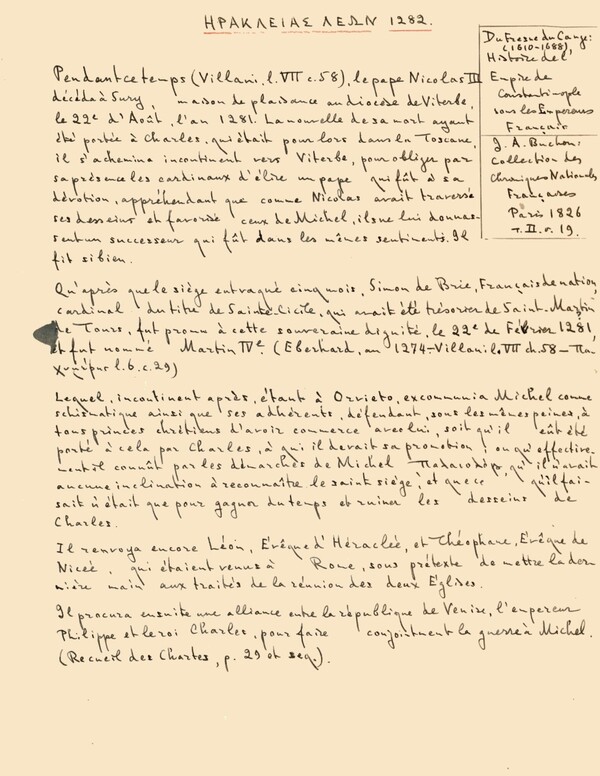 ΗΡΑΚΛΕΙΑΣ ΛΕΩΝ 1282.
Du Fresne du Cange:
(1610-1688),
Histoire de l'
Empire de
Constantinople
sous les Empereurs
Français
J. A. Buchon:
Collection des
Chroniques Nationales
Françaises
Paris 1826
τ. II. σ. 19.
Pendant ce temps (Villani, l. VII c. 58), le pape Nicolas III
décéda à Sury, maison de plaisance au diocèse de Viterbe,
le 22e d'Août, l'an 1281. La nouvelle de sa mort ayant
été portée à Charles, qui était pour lors dans la Toscane,
il s'achemina incontinent vers Viterbe, pour obliger par
sa présence les cardinaux d'élire un pape qui fût à sa
dévotion, appréhendant que comme Nicolas avait traversé
ses desseins et favorisé ceux de Michel, ils ne lui donnas-
sent un successeur qui fût dans les mêmes sentiments. Il
fit si bien.
Qu'après que le siège eut vaqué cinq mois, Simon de Brie, Français de nation,
cardinal du titre de Sainte-Cicile, qui avait été trésorier de Saint-Martin
de Tours, fut promu à cette souveraine dignité, le 22e de Février 1281,
et fut nommé Martin IVe (Eberhard, an 1274-Villani l. VII ch. 58 - Πα-
χυμέρης l. 6. c. 29)
Lequel, incontinent après, étant à Orvieto, excommunia Michel comme
schismatique ainsi que ses adhérents, défendant, sous les mêmes peines, à
tous princes chrétiens d'avoir commerce avec lui, soit qu'il eût été
porté à cela par Charles, à qui il devait sa promotion; ou qu'effective-
ment il connût par les démarches de Michel Παλαιολόγο, qu'il n'avait
aucune inclination à reconnaître le saint siège; et que ce qu'il fai-
sait n'était que pour gagner du temps et ruiner les desseins de
Charles.
Il renvoya encore Léon, Evêque d'Héraclée, et Théophane, Evêque de
Nicée, qui étaient venus à Rome, sous prétexte de mettre la der-
nière main aux traités de la réunion des deux Eglises.
Il procura ensuite une alliance entre la république de Venise, l'empereur
Philippe et le roi Charles, pour faire conjointment la guerre à Michel.
(Recueil des Chartes, p. 29 et seq.).